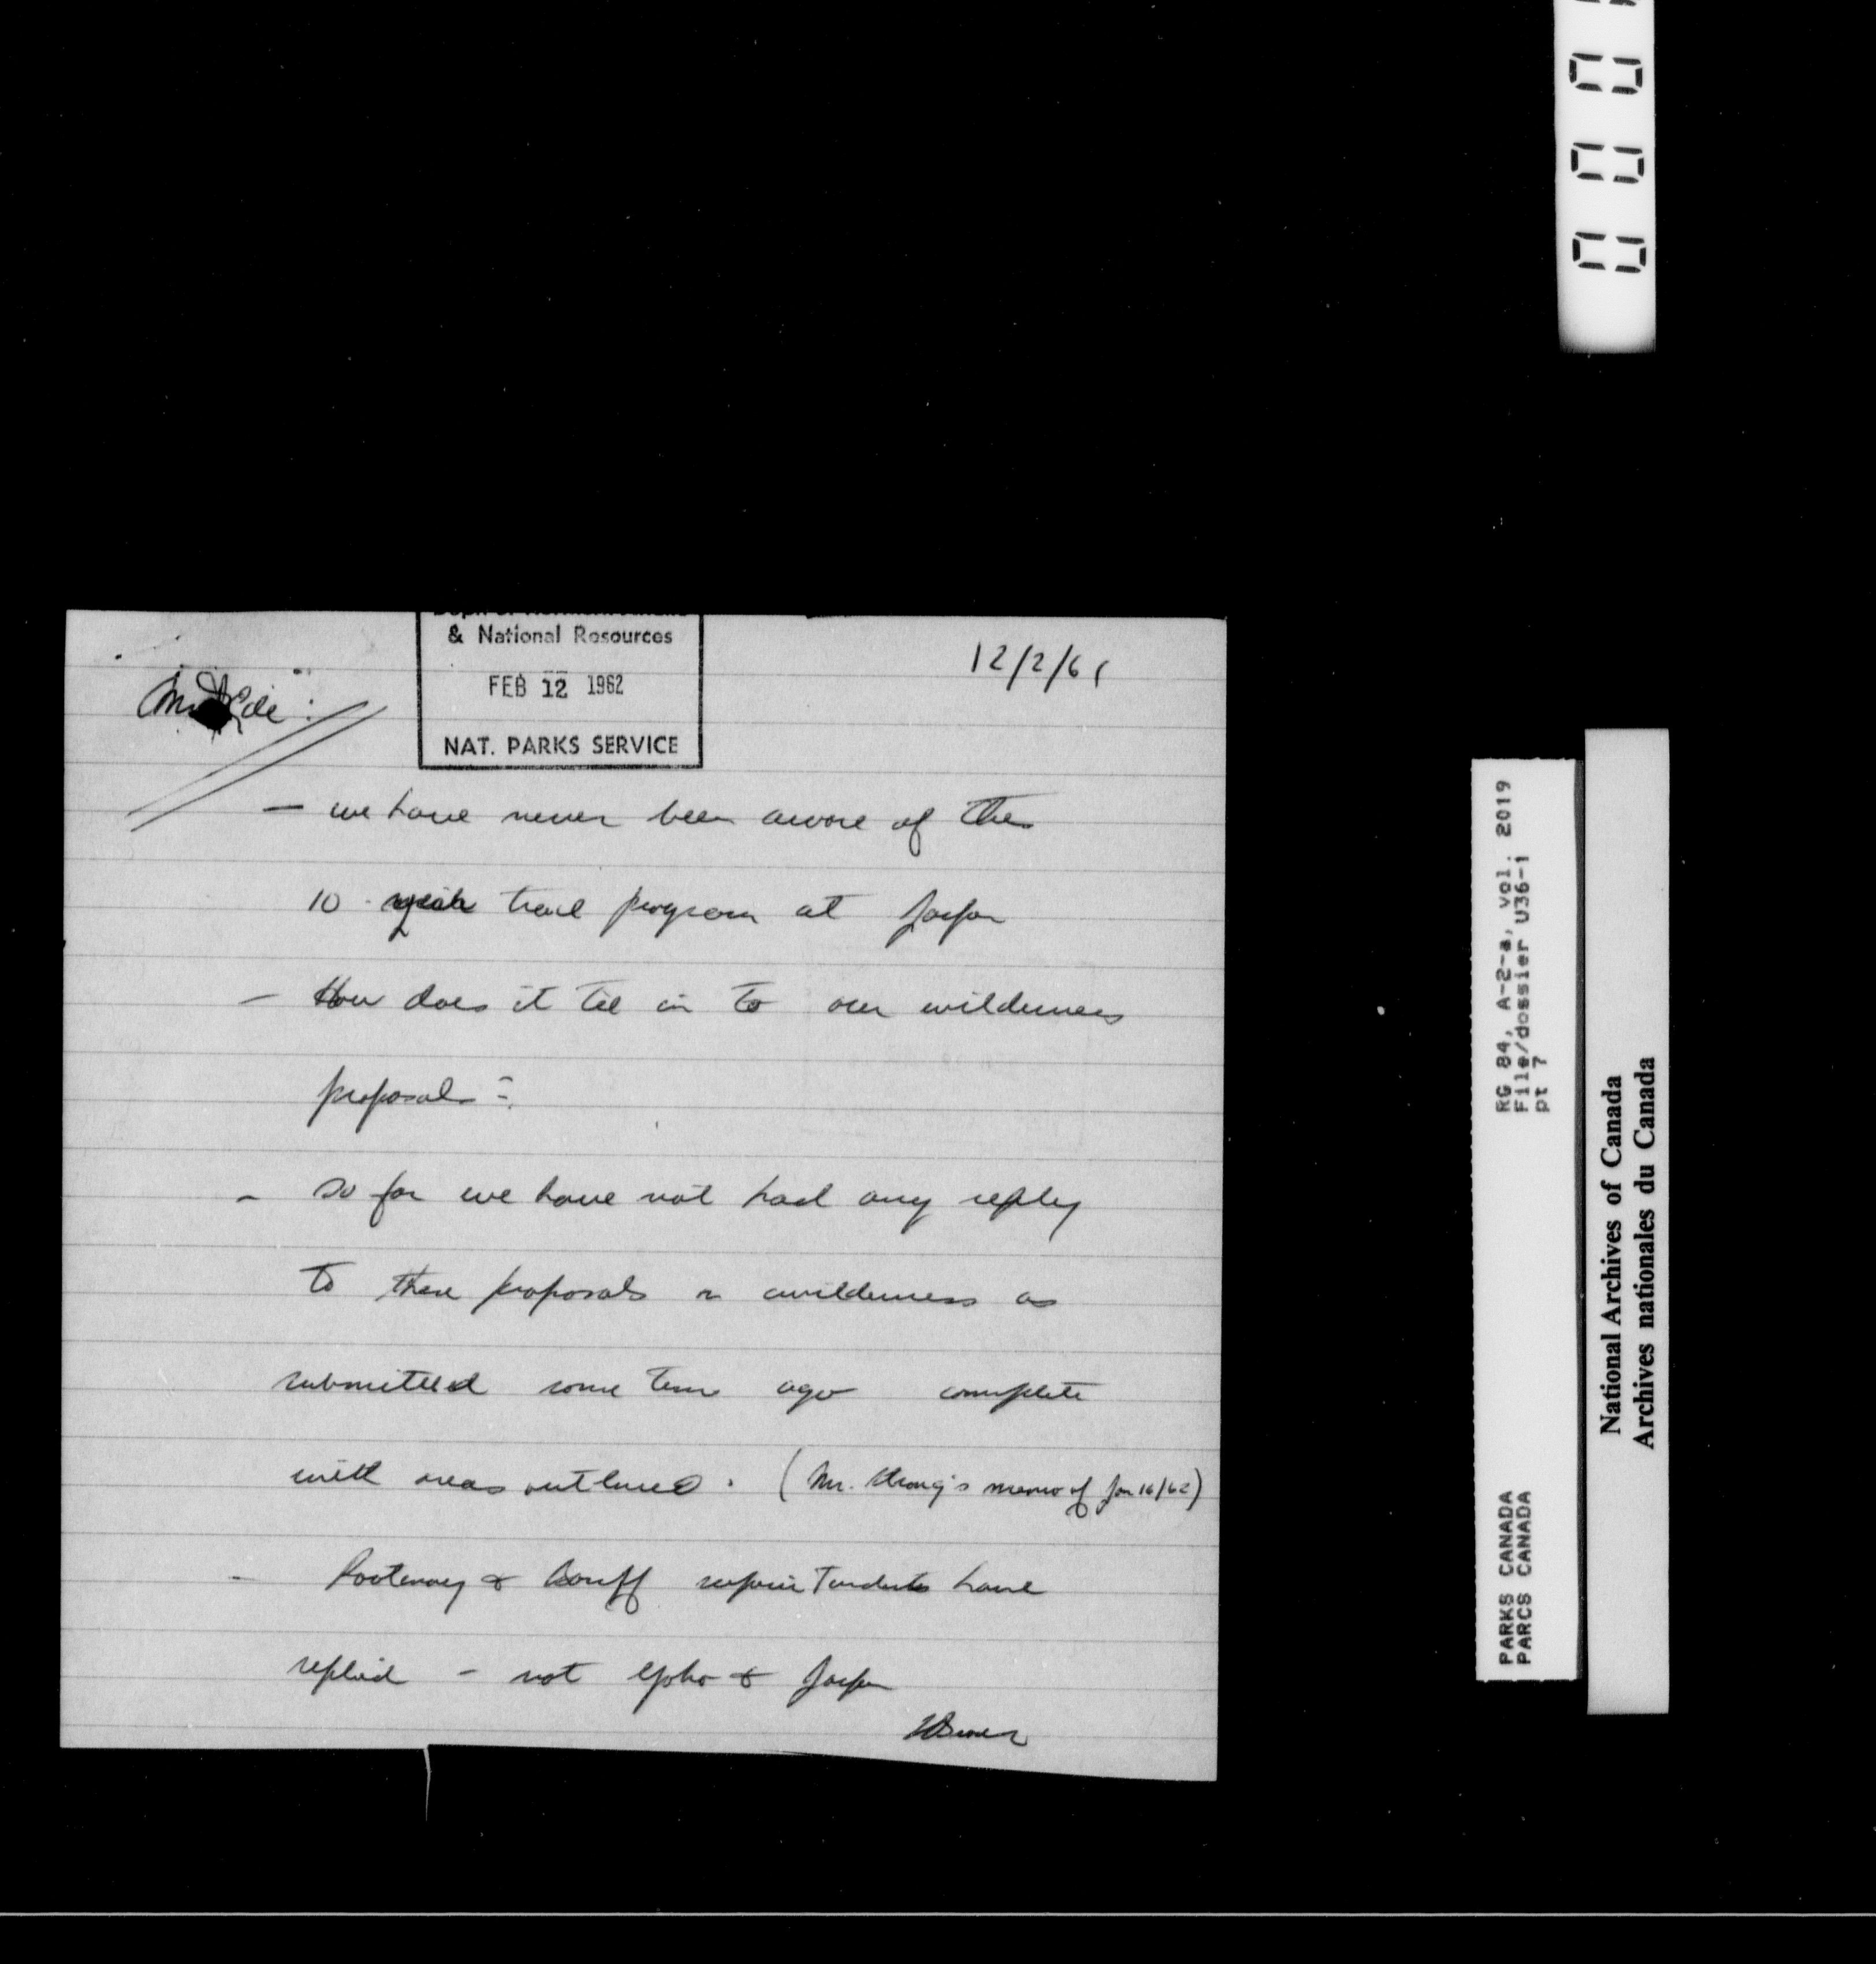 & National Resources
FEB 12 1962
NAT. PARKS SERVICE
12/2/61
Mr. Ede :
- we have never been aware of the
10 year trail program at Jasper
- How does it tie in to our wilderness
proposals ?
- so far we have not had any reply
to these proposals on wilderness as
submitted some time ago complete
with areas outlined . (Mr. Strong's memo of Jan 16/62)
- Kootenay & Banff superintendents have
replied - not Yoho & Jasper
RG 84, A-2-a, vol. 2019
File/dossier U36-1
pt 7
PARKS CANADA
PARCS CANADA
National Archives of Canada
Archives nationales du Canada